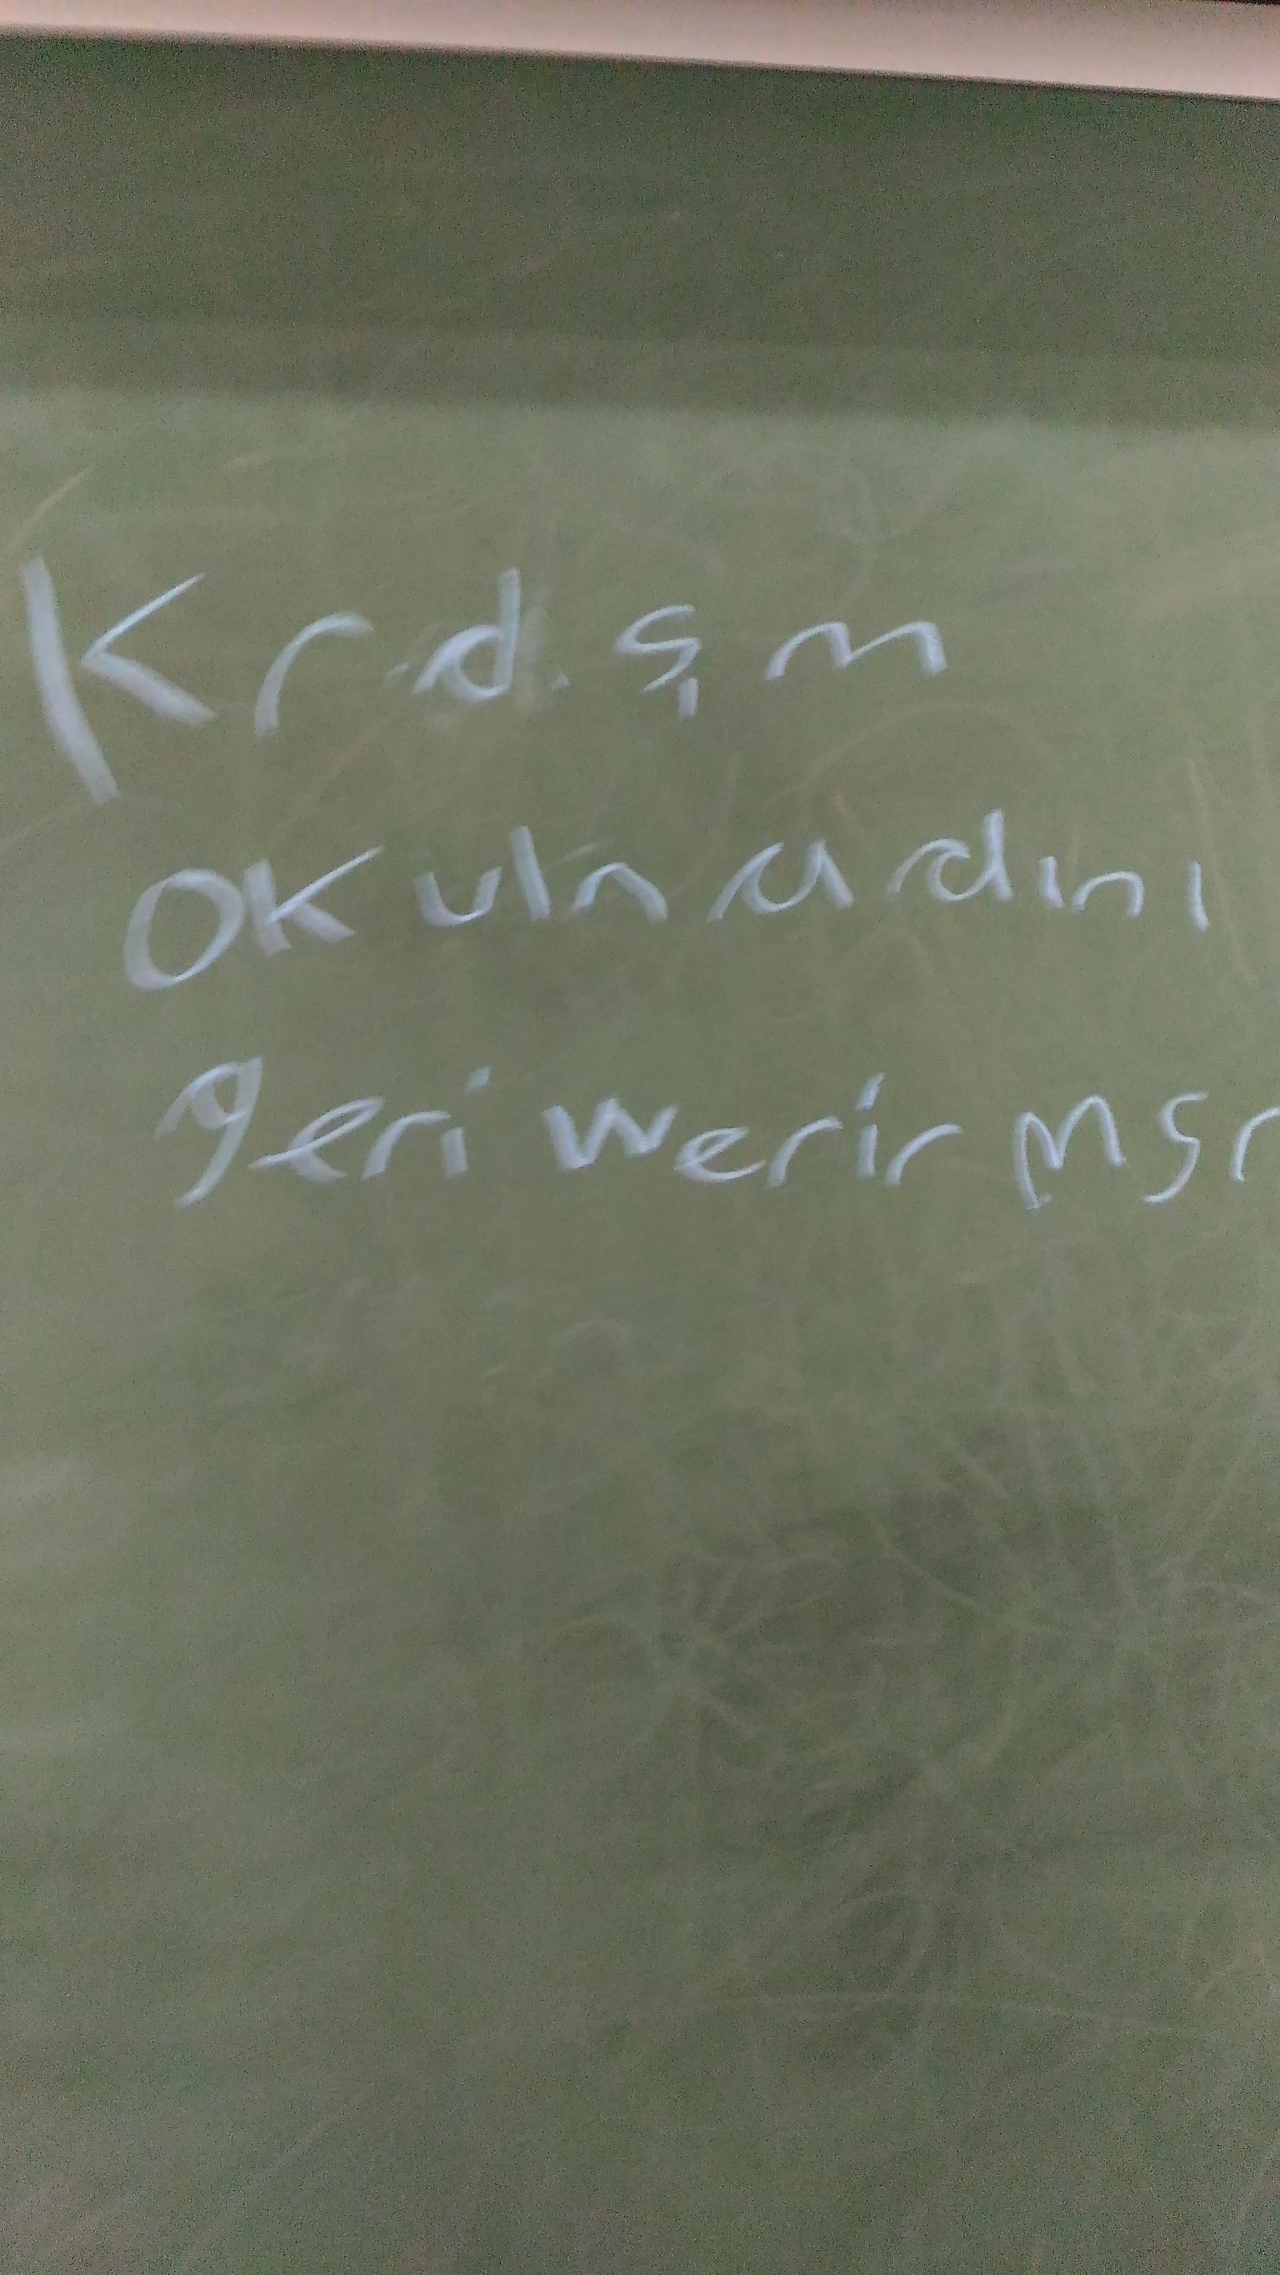 Krdşm
okuln adını
geri werir msn